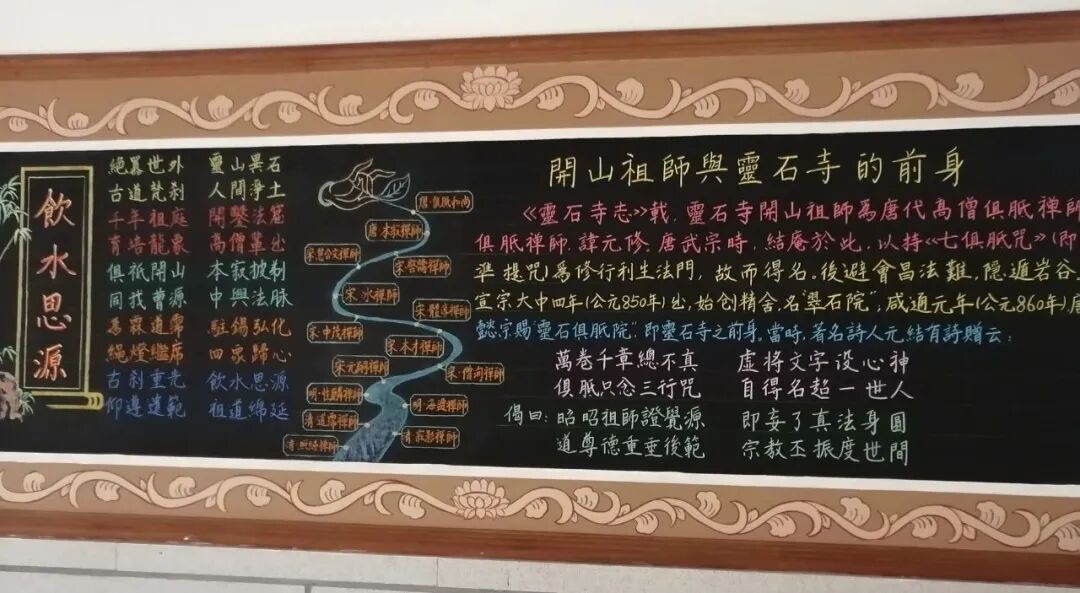 飲水思源
絕異世外 靈山異石
古道梵刹 人間淨土
千年祖庭 開鑿法窟
育培龍象 高僧輩出
俱祇開山 本寂披剃
同找曹源 中興法脈
道霈 駐錫弘化
繩燈繼席 四眾歸心
古刹重光 飲水思源
仰遵遺範 祖道綿延
唐·俱胝和尚
唐·本寂禪師
宋·慧公文禪師
宋·禪師
宋·水禪師
宋·禪師
宋·中茂禪師
宋·本才禪師
宋·元禪師
宋·僧洵禪師
明·性禪師
明·海禪師
清·道霈禪師
清·寂影禪師
清·照禪師
開山祖師與靈石寺的前身
《靈石寺志》載，靈石寺開山祖師為唐代高僧俱胝禪師
俱胝禪師，諱元修，唐武宗時，結庵於此，以持《七俱胝咒》(即
準提咒)為修行利生法門，故而得名。後避會昌法難，隱遁岩谷，
宣宗大中四年(公元850年)出，始创精舍，名"翠石院"，咸通元年(公元860年)，唐
懿宗賜"靈石俱胝院"，即靈石寺之前身。當時，著名詩人元結有詩贈云：
萬卷千章總不真 虛將文字设心神
俱胝只念三行咒 自得名超一世人
偈曰：昭昭祖師證覺源 即妄了真法身圓
道尊德重垂後範 宗教丕振度世間